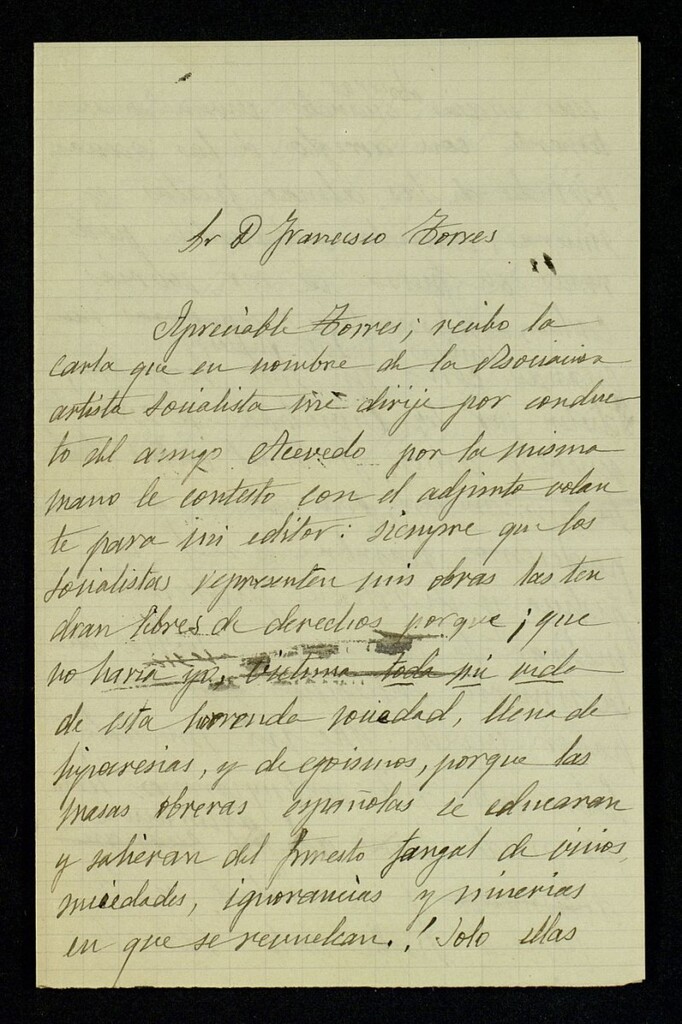 Sr D Francisco Torres
Apreciable Torres; recibo la
carta que en nombre de la Asociacion
artista socialista me dirije por conduc
to del amigo Acevedo por la misma
mano le contesto con el adjunto volan
te para mi editor: siempre que los
socialistas representen mis obras las ten
dran libres de derechos porque ¡ que
no haria yo, victima toda mi vida
de esta horrenda sociedad, llena de
hipocresias, y de egoismos, porque las
masas obreras españolas se educaran
y salieran del funesto fangal de vicios,
suciedades, ignorancias y miserias
en que se revuelcan.! Solo ellas